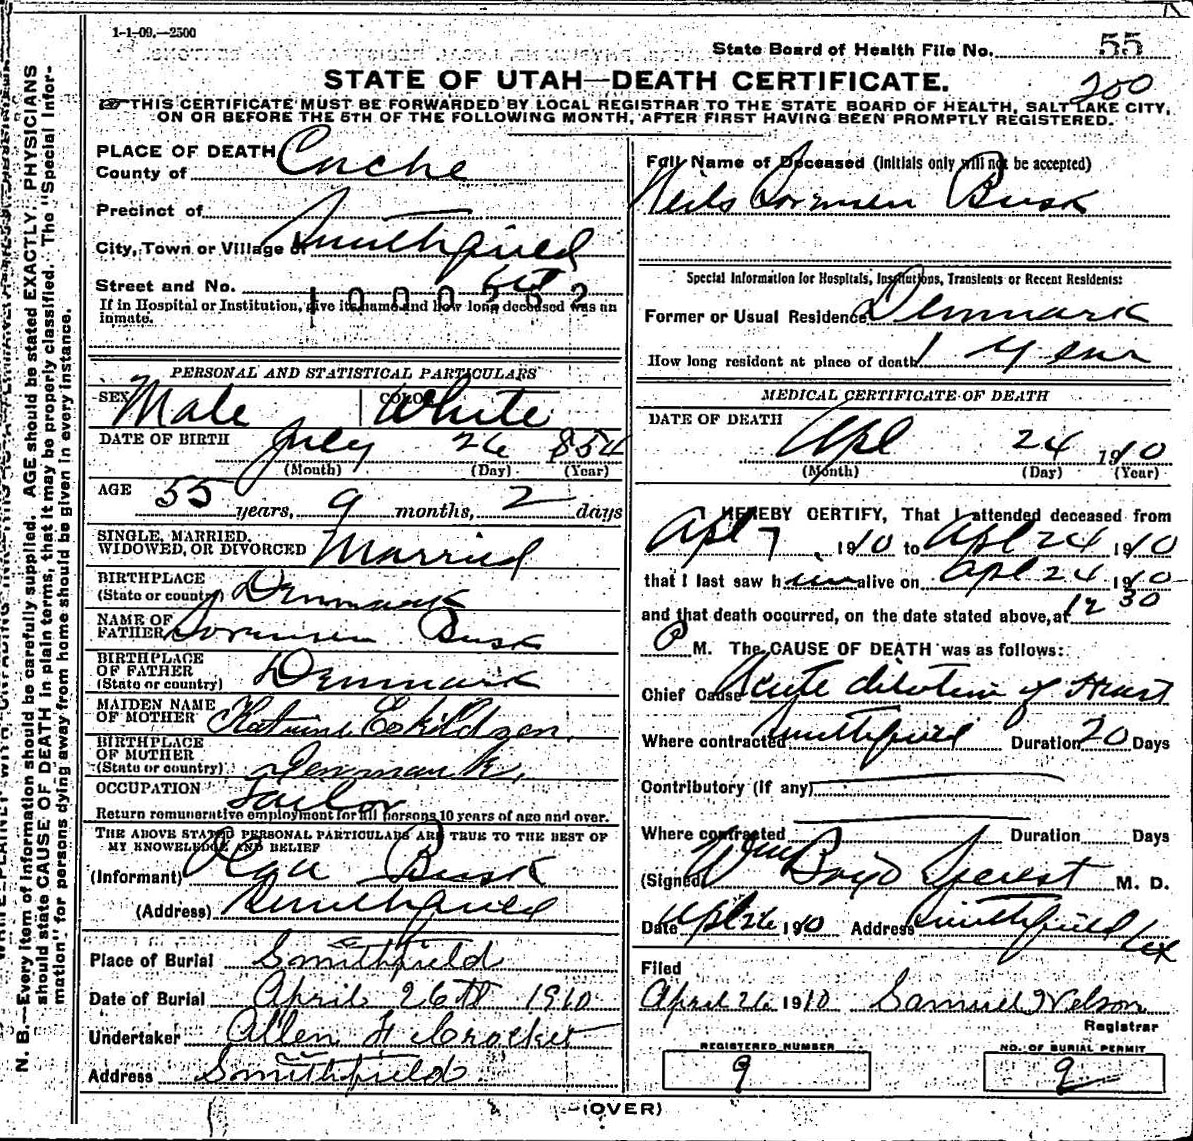 1-1-09.—2500
State Board of Health File No. 55
STATE OF UTAH—DEATH CERTIFICATE.
200
THIS CERTIFICATE MUST BE FORWARDED BY LOCAL REGISTRAR TO THE STATE BOARD OF HEALTH, SALT LAKE CITY,
ON OR BEFORE THE 5TH OF THE FOLLOWING MONTH, AFTER FIRST HAVING BEEN PROMPTLY REGISTERED.
PLACE OF DEATH
County of Cache
Precinct of
City, Town or Village of Smithfield
Street and No.
1000262
If in Hospital or Institution, give its name and how long deceased was an
inmate.
PERSONAL AND STATISTICAL PARTICULARS
SEX Male COLOR White
DATE OF BIRTH July 26 1854
(Month) (Day) (Year)
AGE 55 years, 9 months, 2 days
SINGLE, MARRIED,
WIDOWED, OR DIVORCED Married
BIRTHPLACE
(State or country) Denmark
NAME OF
FATHER Sorensen Busk
BIRTHPLACE
OF FATHER
(State or country) Denmark
MAIDEN NAME
OF MOTHER Katrine Eskildzen
BIRTHPLACE
OF MOTHER
(State or country) Denmark
OCCUPATION Tailor
Return remunerative employment for all persons 10 years of age and over.
THE ABOVE STATED PERSONAL PARTICULARS ARE TRUE TO THE BEST OF
MY KNOWLEDGE AND BELIEF
(Informant) Busk
(Address) Smithfield
Place of Burial Smithfield
Date of Burial April 26th 1910
Undertaker Allen F Crocket
Address Smithfield
Full Name of Deceased (Initials only will not be accepted)
Neils Sorensen Busk
Special Information for Hospitals, Institutions, Transients or Recent Residents:
Former or Usual Residence Denmark
How long resident at place of death 1 year
MEDICAL CERTIFICATE OF DEATH
DATE OF DEATH
Apl 24 1910
(Month) (Day) (Year)
I HEREBY CERTIFY, That I attended deceased from
Apl 7, 1910 to Apl 24 1910
that I last saw him alive on Apl 24 1910
and that death occurred, on the date stated above, at 12 30
P M. The CAUSE OF DEATH was as follows:
Chief Cause Acute dilation of Heart
Where contracted Smithfield Duration 20 Days
Contributory (If any)
Where contracted Duration Days
(Signed) Wm Boyd M. D.
Date Apl 26 1910 Address Smithfield
Filed
April 26 1910 Samuel Nelson
Registrar
REGISTERED NUMBER
9
NO. OF BURIAL PERMIT
9
(OVER)
N. B.—Every item of information should be carefully supplied. AGE should be stated EXACTLY. PHYSICIANS
should state CAUSE OF DEATH in plain terms, that it may be properly classified. The "Special Infor-
mation," for persons dying away from home should be given in every instance.